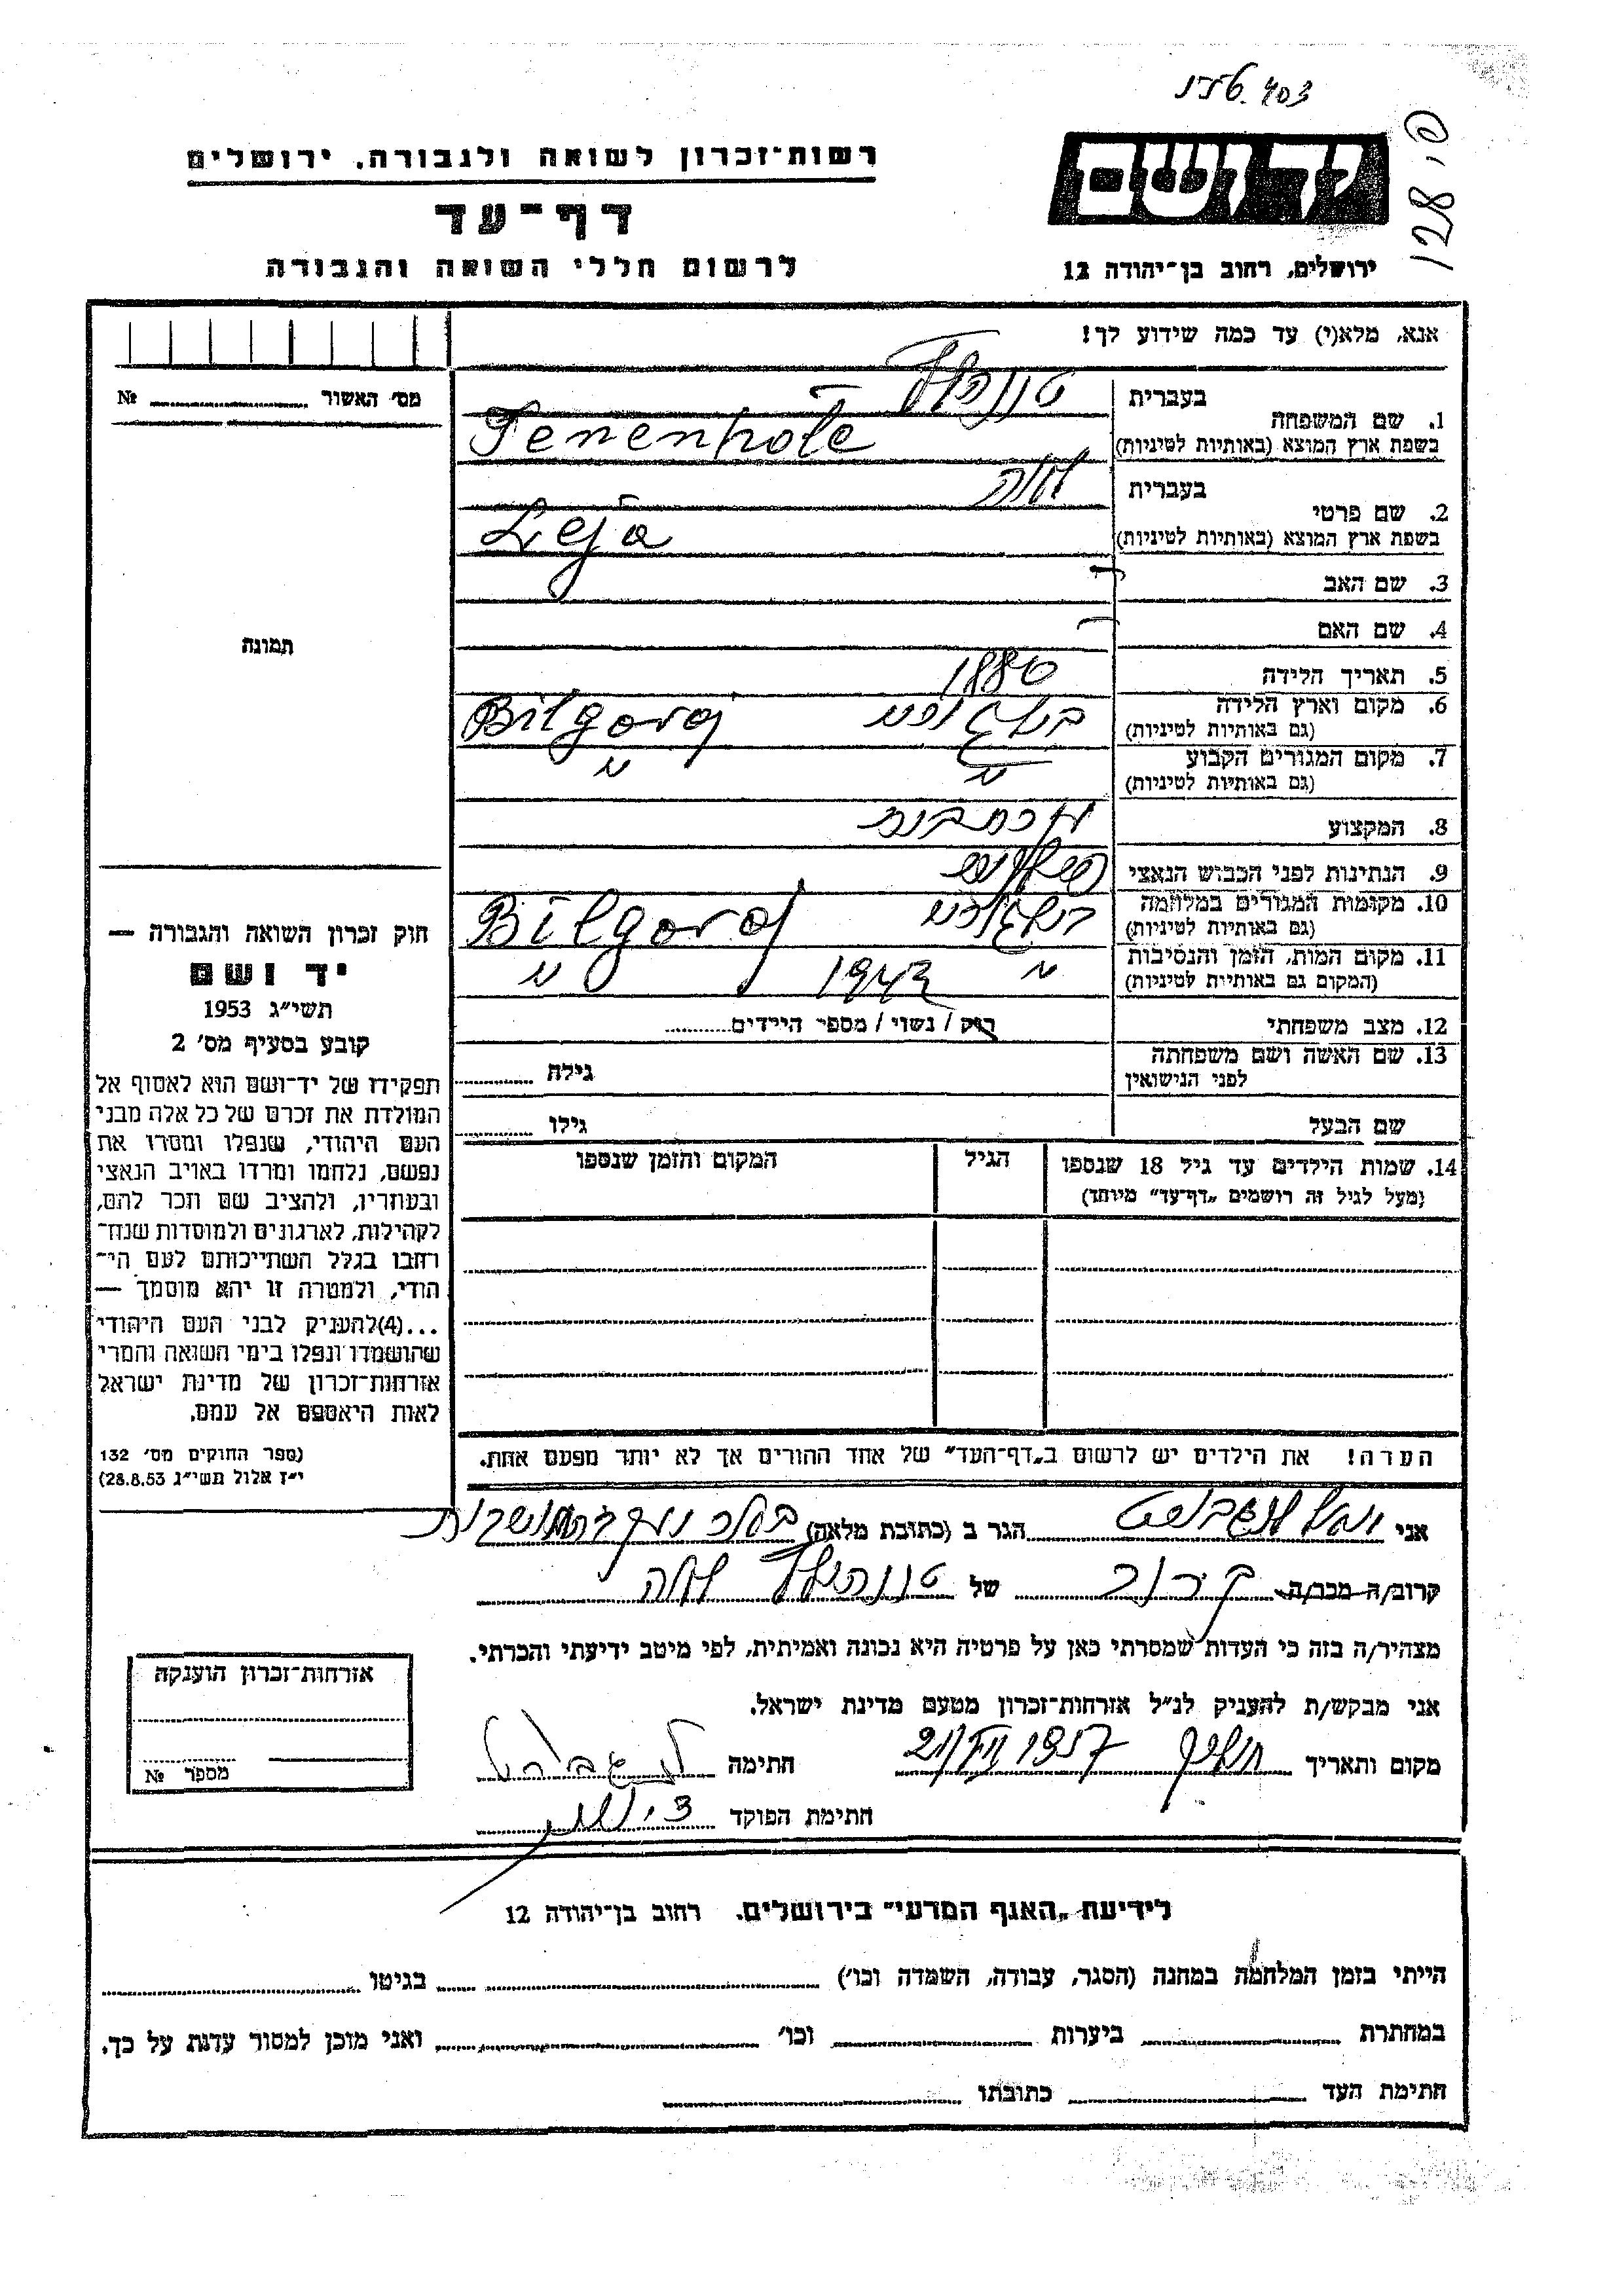 403
128
יד ושם
רשות־זכרון לשואה ולגבורה. ירושלים
דף־עד
לרשום חללי השואה והגבורה
ירושלים, רחוב בן־יהודה 12
אנא, מלא(י) עד כמה שידוע לך!
מס׳ האשור № 
1. שם המשפחה
בעברית
בשפת ארץ המוצא (באותיות לטיניות) Tenenhole
2. שם פרטי
בעברית לאה
בשפת ארץ המוצא (באותיות לטיניות) Leja
3. שם האב –
4. שם האם –
תמונה
5. תאריך הלידה 1880
6. מקום וארץ הלידה
(גם באותיות לטיניות) בילגוריי Bilgoraj
7. מקום המגורים הקבוע
(גם באותיות לטיניות) " "
8. המקצוע
9. הנתינות לפני הכבוש הנאצי
10. מקומות המגורים במלחמה
(גם באותיות לטיניות) בילגוריי Bilgoraj
11. מקום המות, הזמן והנסיבות
(המקום גם באותיות לטיניות) " 1942 "
12. מצב משפחתי רוק / נשוי / מספר הילדים
13. שם האשה ושם משפחתה
לפני הנישואין גילה
שם הבעל גילו
14. שמות הילדים עד גיל 18 שנספו
(מעל לגיל זה רושמים „דף־עד״ מיוחד)
הגיל
המקום והזמן שנספו
חוק זכרון השואה והגבורה —
יד ושם
תשי״ג 1953
קובע בסעיף מס׳ 2
תפקידו של יד־ושם הוא לאסוף אל
המולדת את זכרם של כל אלה מבני
העם היהודי, שנפלו ומסרו את
נפשם, נלחמו ומרדו באויב הנאצי
ובעוזריו, ולהציב שם וזכר להם,
לקהילות, לארגונים ולמוסדות שנח־
רחבו בגלל השתייכותם לעם הי־
הודי, ולמטרה זו יהא מוסמך —
...(4)להעניק לבני העם היהודי
שהושמדו ונפלו בימי השואה והמרי
אזרחות־זכרון של מדינת ישראל
לאות היאספם אל עמם.
(ספר החוקים מס׳ 132
י״ז אלול תשי״ג 28.8.53)
הערה! את הילדים יש לרשום ב„דף־העד״ של אחד ההורים אך לא יותר מפעם אחת.
אני הגר ב (כתובת מלאה)
קרוב/ה מכר/ה קרוב של לאה
מצהיר/ה בזה כי העדות שמסרתי כאן על פרטיה היא נכונה ואמיתית, לפי מיטב ידיעתי והכרתי.
אני מבקש/ת להעניק לנ״ל אזרחות־זכרון מטעם מדינת ישראל.
מקום ותאריך 1957 חתימה
חתימת הפוקד
אזרחות־זכרון הוענקה
מספר №
לידיעת „האגף המדעי״ בירושלים. רחוב בן־יהודה 12
הייתי בזמן המלחמה במחנה (הסגר, עבודה, השמדה וכו׳) בגיטו
במחתרת ביערות וכו׳ ואני מוכן למסור עדות על כך.
חתימת העד כתובתו